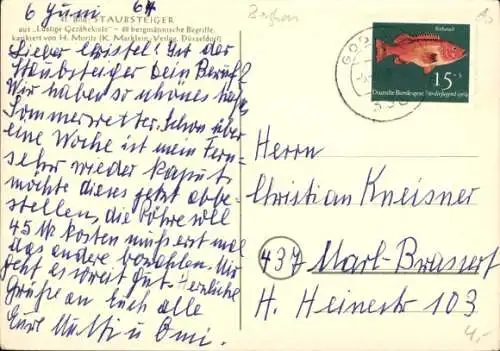 6 Juni 64
41. Bild: STAUBSTEIGER
aus „Lustige Gezähekiste" – 48 bergmännische Begriffe,
karikiert von H. Moritz (K. Marklein-Verlag, Düsseldorf)
Lieber Christel! Ist der
Staubsteiger Dein Beruf?
Wir haben so schönes
Sommerwetter. Schon über
eine Woche ist mein Fern-
sehr wieder kaput,
möchte dieses jetzt abbe-
stellen, die Röhre soll
45 M kosten muß erst mal
das andere bezahlen. Mir
geht es soweit gut. Herzliche
Grüße an Euch alle
Eure Mutti u Omi.
Bergbau
Rotbarsch
15+5
Deutsche Bundespost Für die Jugend 1964
Herrn
Christian Kneisner
437 Marl-Brassert
H. Heinestr 103
4,-